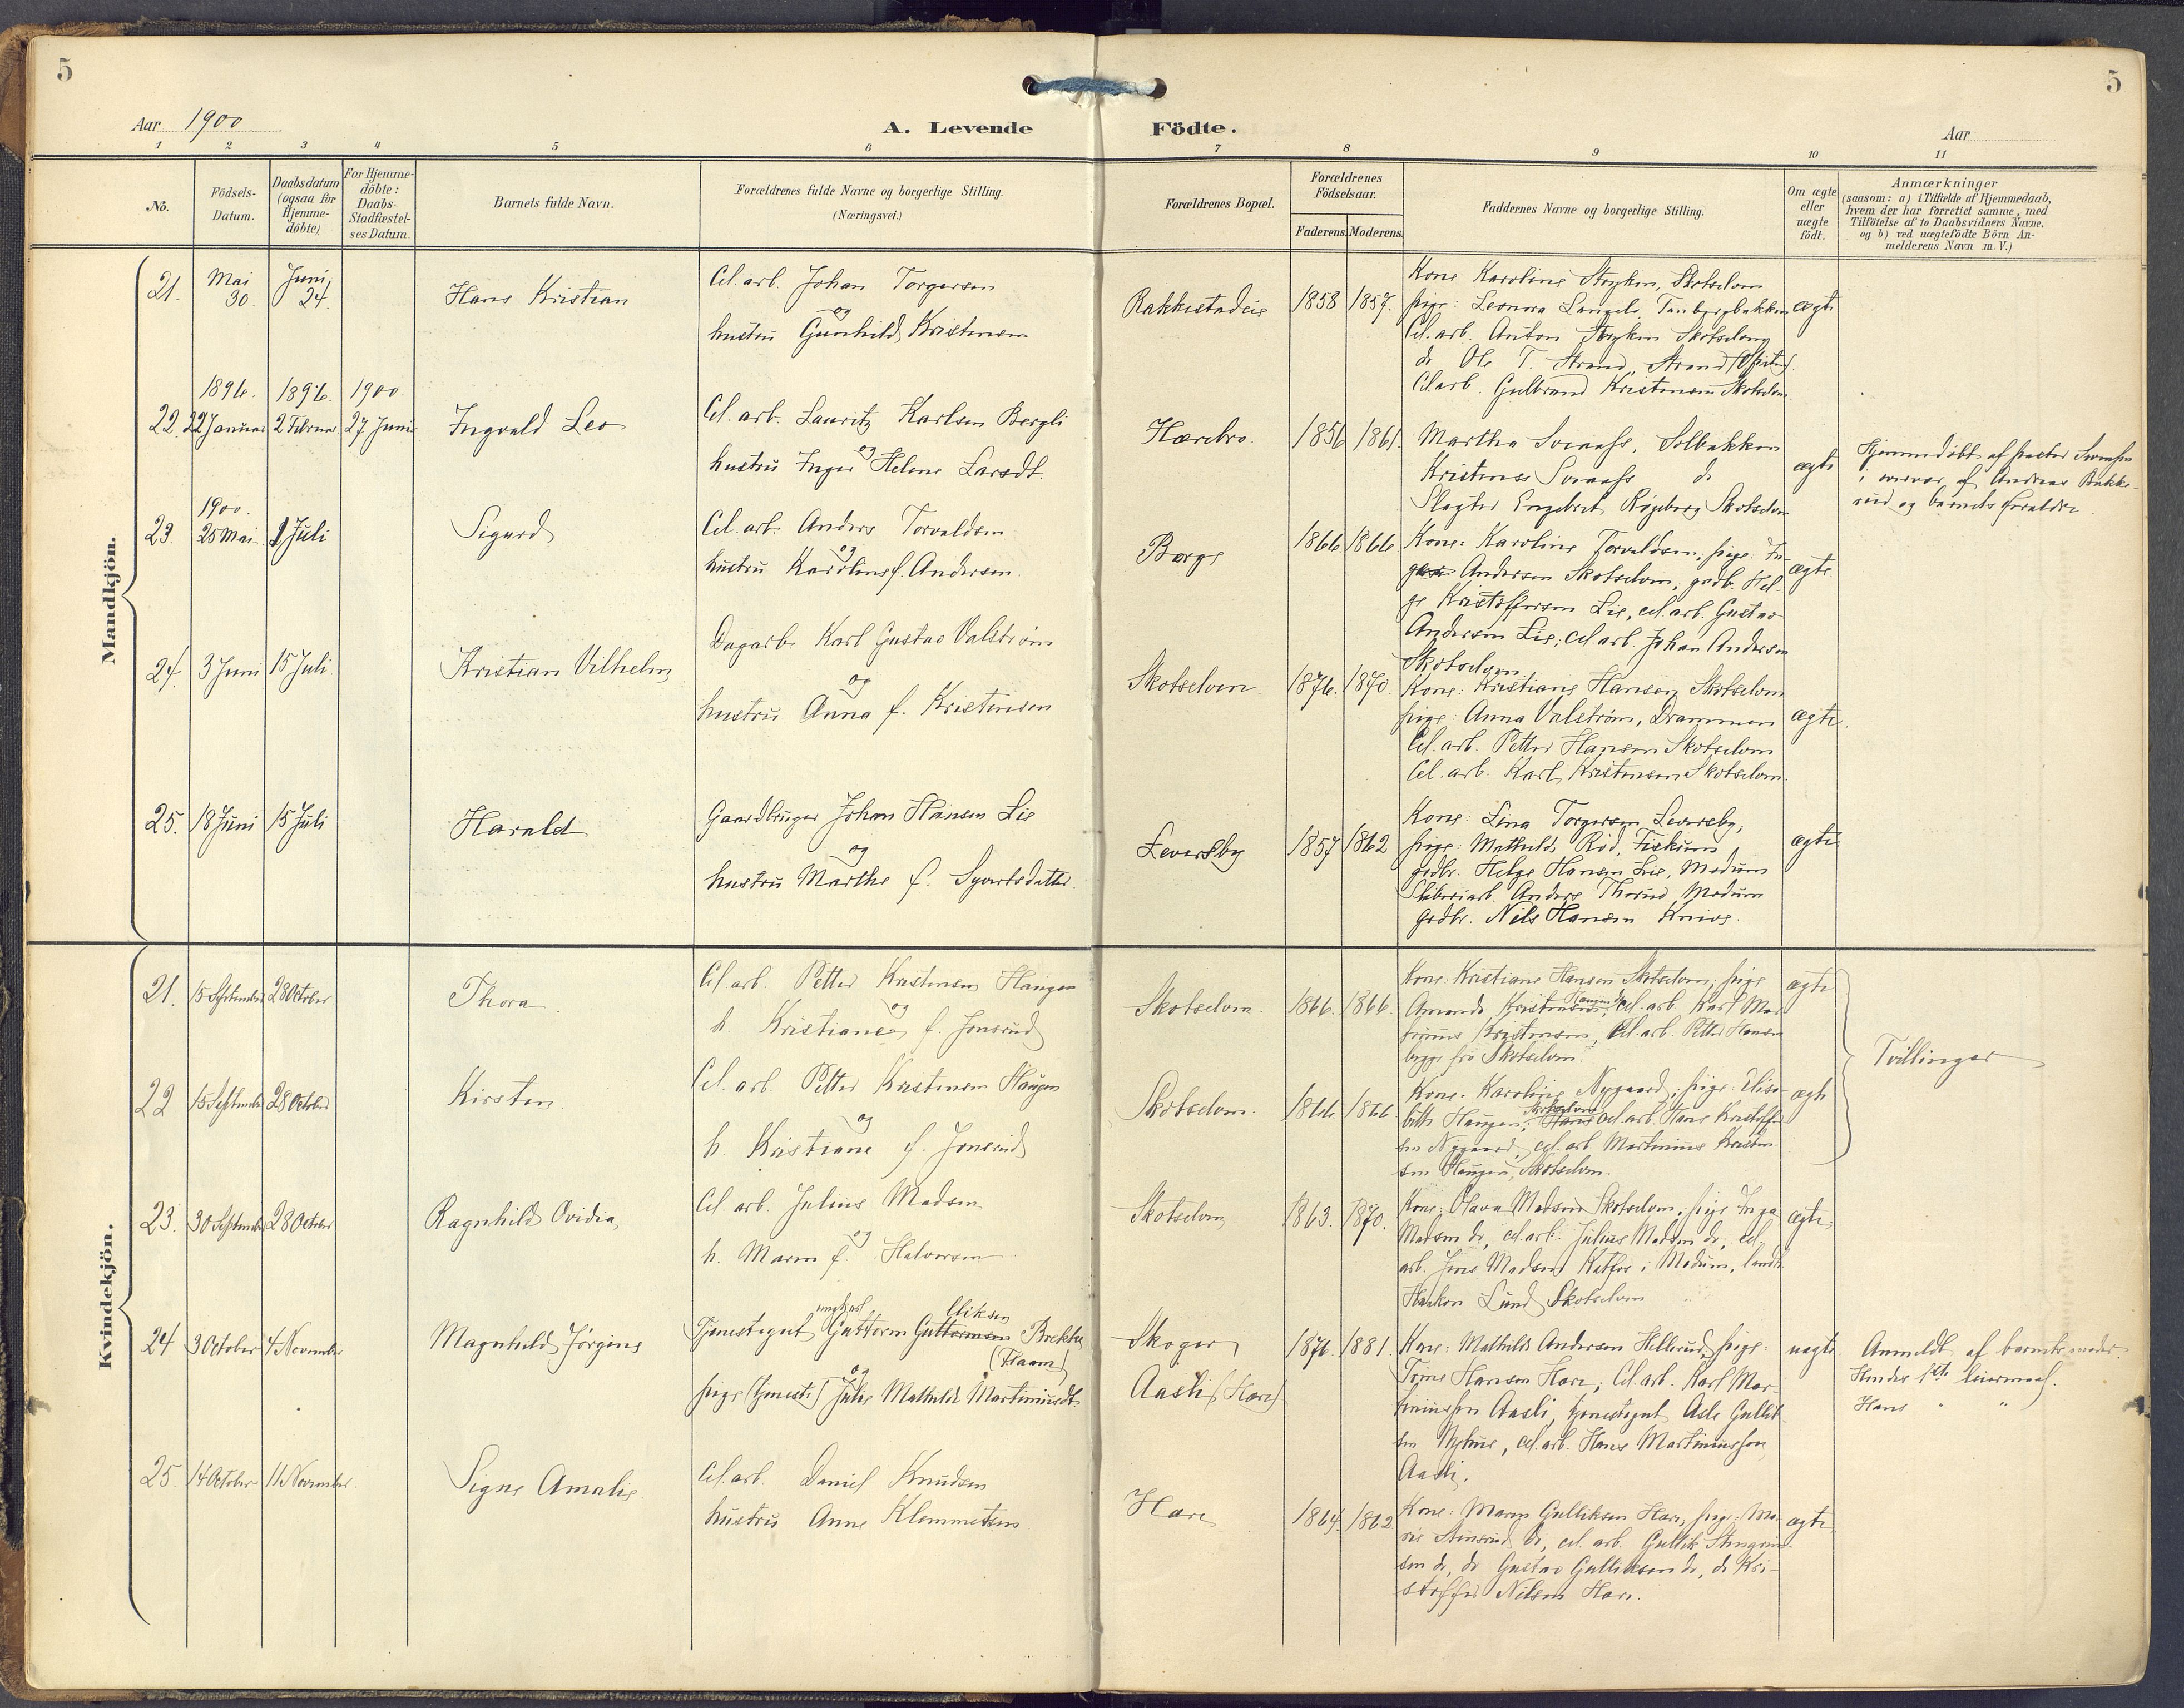 5
5
Aar 1900
A. Levende Födte.
Aar
1 2 3 4 5 6 7 8 9 10 11
No.
Födsels-Datum.
Daabsdatum (ogsaa for Hjemme-döbte)
For Hjemme-döbte: Daabs-Stadfæstel-ses Datum.
Barnets fulde Navn.
Forældrenes fulde Navne og borgerlige Stilling.
(Næringsvei.)
Forældrenes Bopæl.
Forældrenes Födselsaar.
Faderens. Moderens.
Faddernes Navne og borgerlige Stilling.
Om ægte eller uægte födt.
Anmærkninger
(saasom: a) i Tilfælde af Hjemmedaab,
hvem der har forrettet samme, med
Tilföielse af to Daabsvidners Navne,
og b) ved uægtefödte Börn An-
melderens Navn m. V.)
Mandkjön.
21. Mai 30. Juni 24.
Hans Kristian
Cel. arb. Johan Torgersen
og
hustru Gunhild Kristensen
Rakkestadeie
1858 1857.
Kone Karoline Stryken, Skotselven
pige: Leonora
Cel. arb. Anton Stryken Skotselven
do Ole T. Strand, Strand
Cel. arb. Gulbrand Kristensen Skotselven
ægte
22. 1896. 22 Januar 1896. 2 Februar 1900. 27 Juni
Ingvald Leo
Cel. arb. Lauritz Karlsen Bergli
og
hustru Inger Helene Larsdt.
Horebro.
1856 1861
Martha Soraas, Solbakken
Kristense Soraas do
Slagter Engebret Røgeberg Skotselven
ægte
Hjemmedöbt af pastor Svensen
i overvær af Andreas Bakke-
rud og barnets forældre.
23. 1900. 25 Mai 1 Juli
Sigurd
Cel. arb. Anders Torvaldsen
og
hustru Karoline f. Andersen.
Borge
1866. 1866.
Kone: Karoline Torvaldsen, pige: In-
ga Andersen Skotselven, gadb. Hel-
ge Kristoffersen Lie, cel. arb. Gustav
Andersen Lie, cel. arb. Johan Andersen
Skotselven
ægte
24. 3 Juni 15 Juli.
Kristian Vilhelm
Dagarb. Karl Gustav Valström
og
hustru Anna f. Kristensen
Skotselven.
1876. 1870.
Kone: Kristiane Hansen Skotselven
pige: Anna Valström, Drammen
Cel. arb. Petter Hansen Skotselven
Cel. arb. Karl Kristensen Skotselven.
ægte.
25. 18 Juni 15 Juli
Harald
Gaardbruger Johan Hansen Lie
og
hustru Marthe f. Syvertsdatter.
Leversby
1857 1862
Kone: Lina Torgersen Leversby,
pige: Mathilde Röd, Fiskum
gadbr. Helge Hansen Lie, Modum
Sliberiarb. Anders Thorud, Modum
gadbr. Nils Hansen Knive.
ægte
Kvindekjön.
21. 15 September 28 October
Thora
Cel. arb. Petter Kristensen Haugen
og
h. Kristiane f. Jonsrud
Skotselven.
1866. 1866.
Kone: Kristiane Hansen Skotselven, pige
Amanda Kristensen, cel. arb. Karl Mar-
tinius Kristensen, Cel. arb. Petter Hansen
begge fra Skotselven.
ægte
Tvillinger
22 15 September 28 October
Kirsten
Cel. arb. Petter Kristensen Haugen
og
h. Kristiane f. Jonsrud
Skotselven.
1866 1866
Kone: Karoline Nygaard, pige: Elisa-
beth Haugen, Skotselven cel. arb. Hans Kristoffer-
sen Nygaard, cel. arb. Martinius Kristen-
sen Haugen, Skotselven.
ægte
23. 30 September 28 October
Ragnhild Ovidia
Cel. arb. Julius Madsen
og
h. Maren f. Halvorsen
Skotselven
1863. 1870.
Kone: Olava Madsen Skotselven, pige Inga
Madsen do, cel. arb. Julius Madsen do, cel.
arb. Jens Madsen Katfos i Modum, landh.
Haakon Lund Skotselven
ægte.
24 3 October 4 November
Magnhild Jörgine
ungkarl
Tjenestegut Guttorm Gulliksen Brekke
(Flaam)
og
pige (tjeneste) Julie Mathilde Martiniusdt.
Skoger
Aasli (Hare)
1876. 1881.
Kone: Mathilde Andersen Hellerud, pige:
Tomine Hansen Hare, Cel. arb. Karl Mar-
tiniussen Aasli, tjenestegut Asle Gullik-
sen Myhre, cel. arb. Hans Martiniussen
Aasli.
uægte
Anmeldt af barnets moder.
Hendes 1ste leiermaal.
Hans " "
25. 14 October 11 November
Signe Amalie.
Cel. arb. Daniel Knudsen
hustru Anne Klemmetsen
Hare
1864. 1862
Kone: Maren Gulliksen Hare, pige: Ma-
rie Stensrud do, cel. arb. Gullik Stengrim-
sen do, do Gustav Gulliksen do, do Kri-
stoffer Nilsen Hare.
ægte